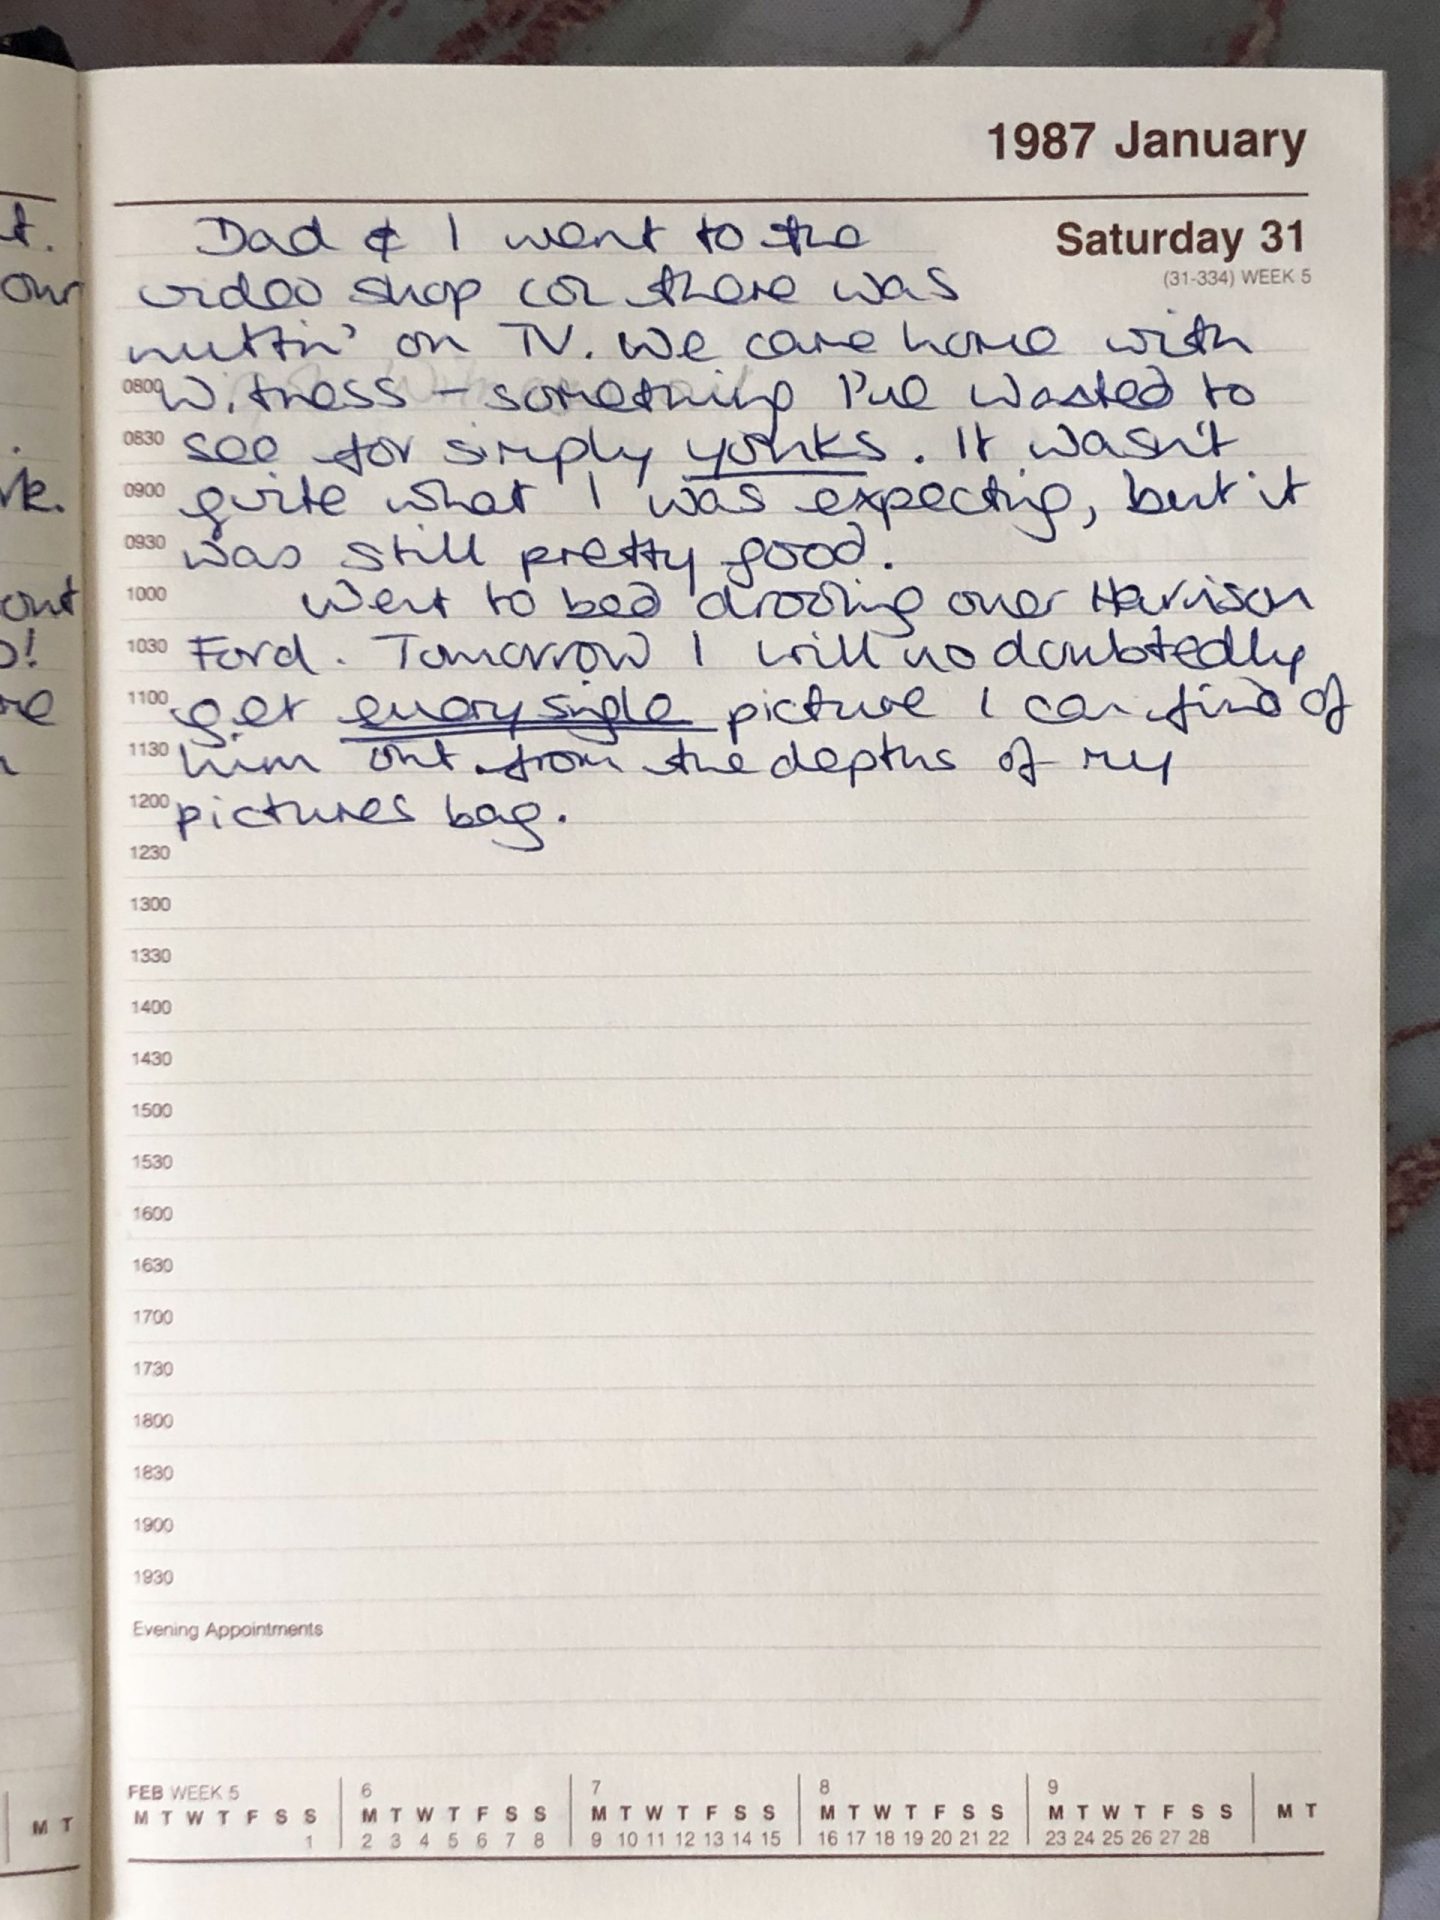 1987 January
Saturday 31
(31-334) WEEK 5
Dad & I went to the
video shop coz there was
nuttin' on TV. We came home with
0800 Witness - something I've wanted to
0830 see for simply yonks. It wasn't
0900 quite what I was expecting, but it
0930 was still pretty good.
1000 Went to bed drooling over Harrison
1030 Ford. Tomorrow I will no doubtedly
1100 get every single picture I can find of
1130 him out from the depths of my
1200 pictures bag.
1230
1300
1330
1400
1430
1500
1530
1600
1630
1700
1730
1800
1830
1900
1930
Evening Appointments
FEB WEEK 5 6 7 8 9
M T W T F S S M T W T F S S M T W T F S S M T W T F S S M T W T F S S M T
1 2 3 4 5 6 7 8 9 10 11 12 13 14 15 16 17 18 19 20 21 22 23 24 25 26 27 28
t.
our
rk.
out
o!
re
M T